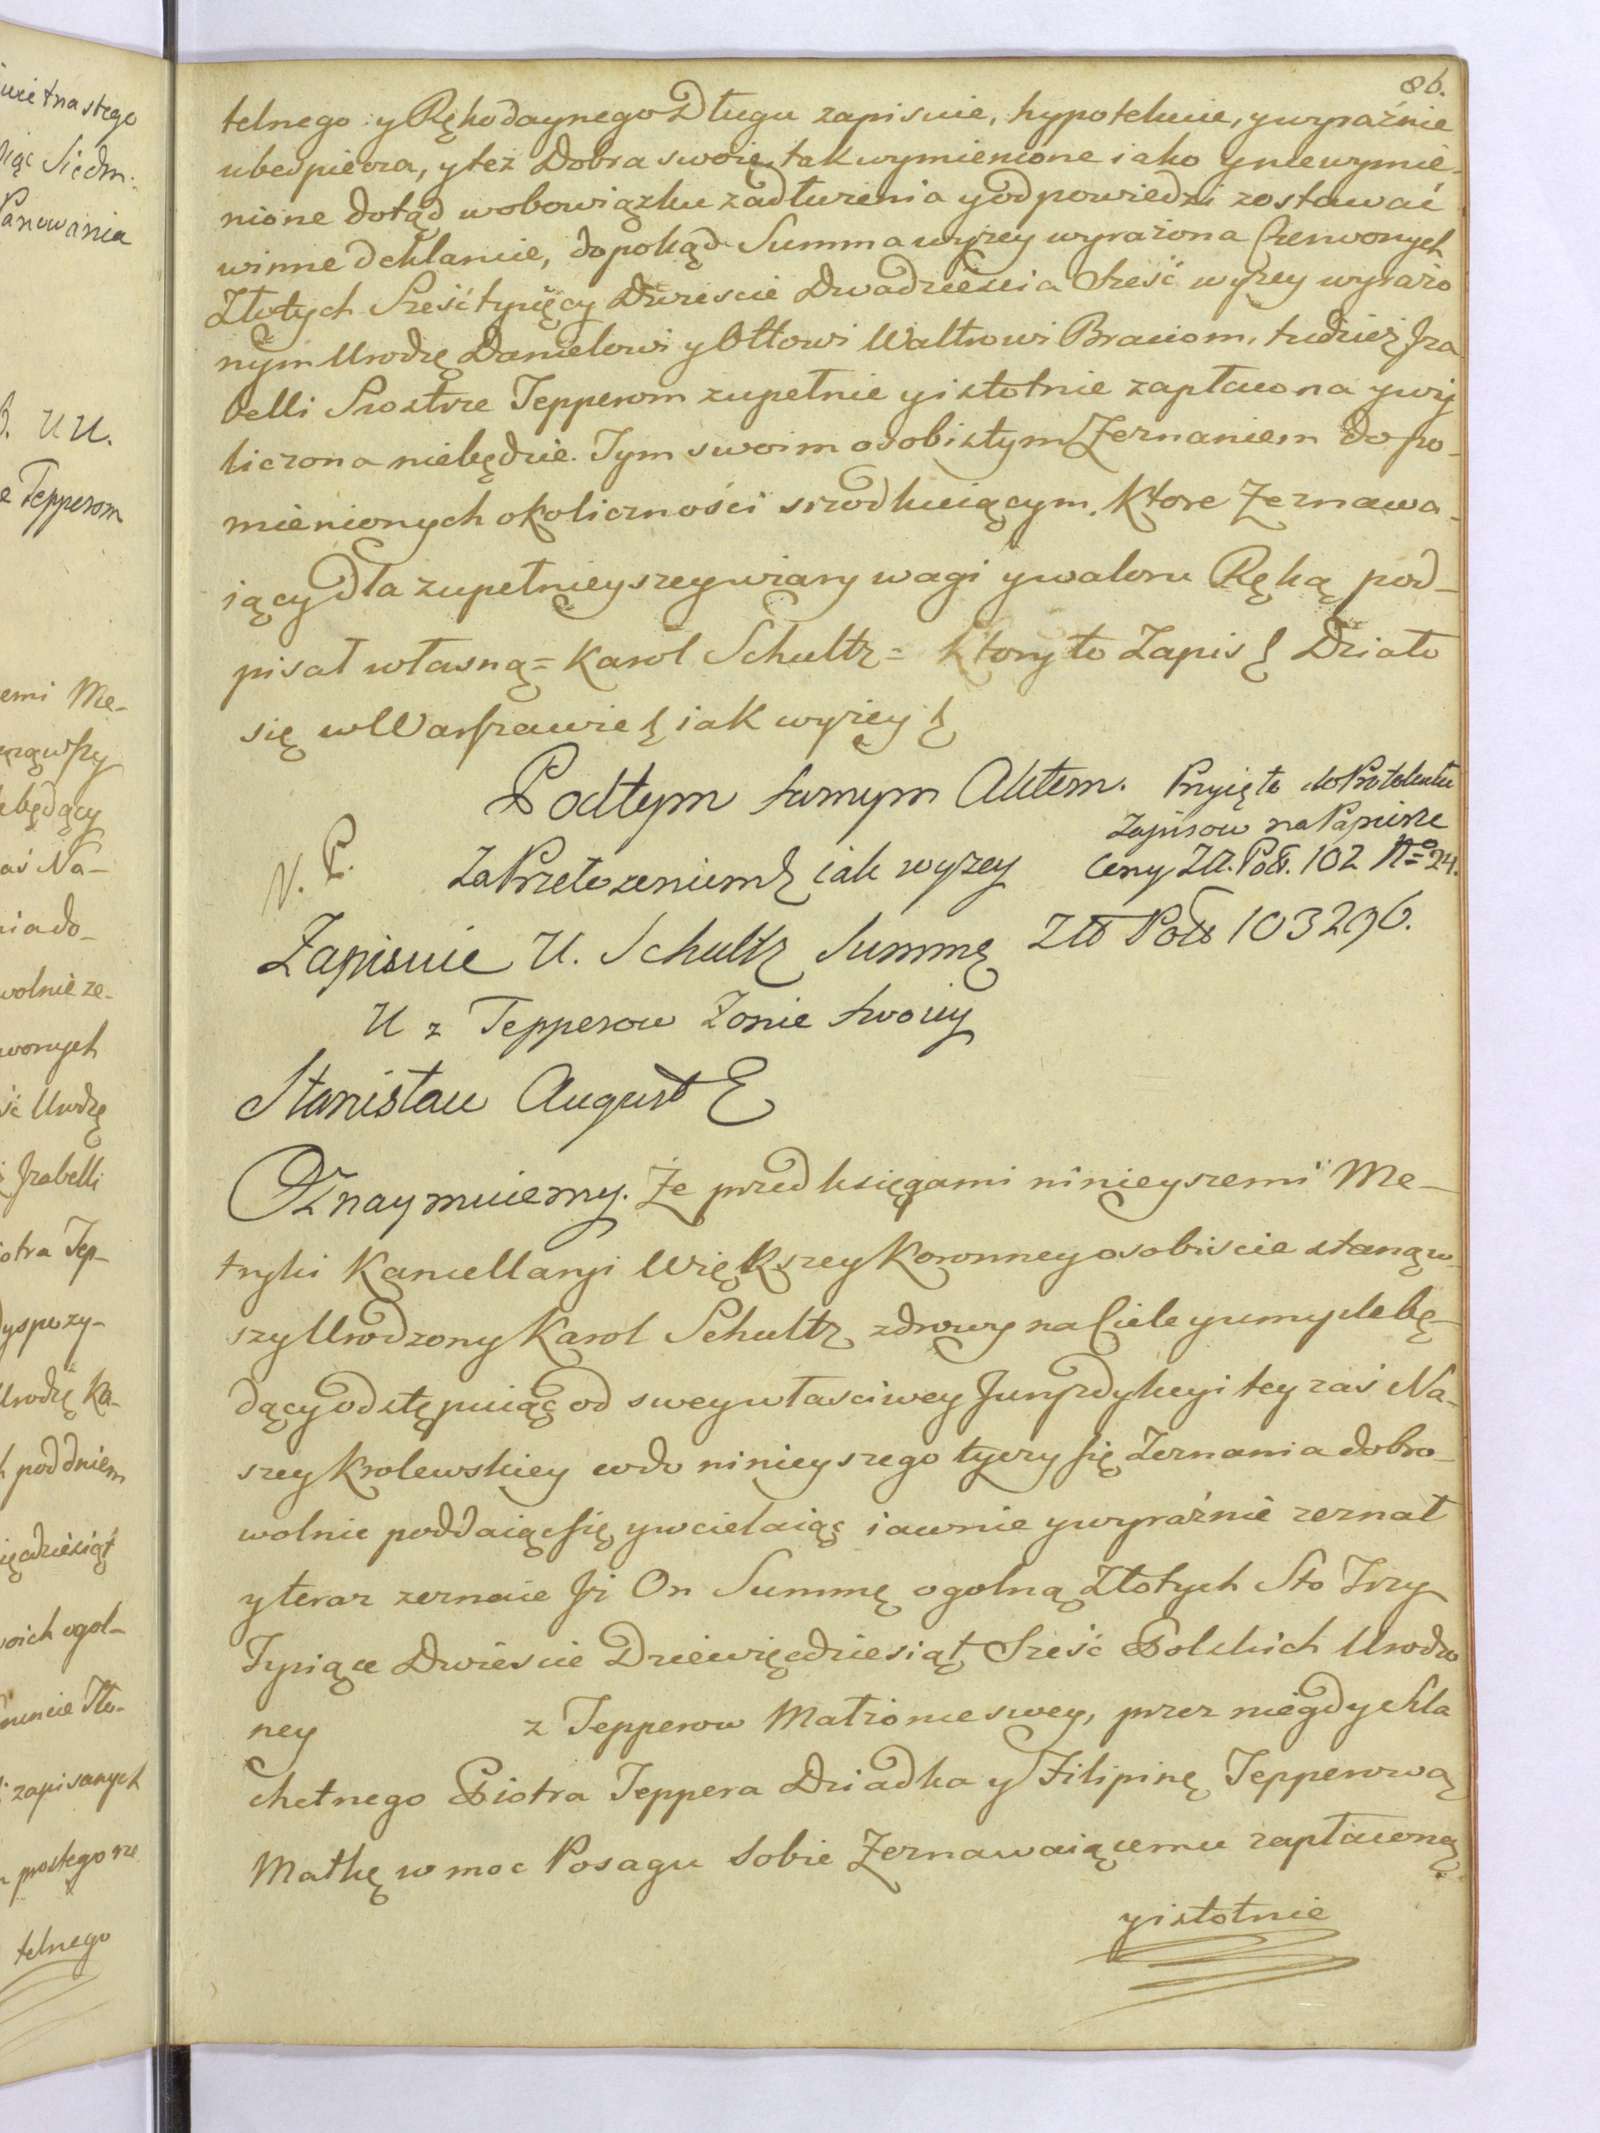 86.
telnego y Rękodaynego Długu zapisuie, hypotekuie, y wyraźnie
ubespiecza, y też Dobra swoie tak wymienione iako y niewymie-
nione dotąd w obowiązku zadłużenia y odpowiedzi zostawać
winne deklaruie, dopokąd Summa wyżey wyrażona Czerwonych
Złotych Sześć tysięcy Dwieście Dwadzieścia Sześć wyżey wyrażo
nym Urodzę Danielowi y Ottowi Waltrowi Braciom, tudzież Iza
belli Siostrze Tepperom zupełnie y istotnie zapłacona y wy
liczona niebędzie. Tym swoim osobistym Zeznaniem do po-
mienionych okoliczności srzodkuiącym. Ktore Zeznawa-
iący dla zupełnieyszey wiary wagi y waloru Ręką pod-
pisał własną = Karol Schultz = Ktory to Zapis Działo
się w Warszawie iak wyżey
Pod tym samym Aktem. Przyięto do Protokułu
Zapisow na Papierze
V. P. Za Przełożeniem iak wyżey Ceny Zł. Pol. 102 No 24.
Zapisuie U. Schultz Summę Złł Pols 103296.
U z Tepperow Żonie swoiey
Stanisław August
Oznaymuiemy. Że przed księgami ninieyszemi Me-
tryki Kancellaryi Większey Koronney osobiście stanąw-
szy Urodzony Karol Schultz zdrowy na Ciele y umyśle bę-
dący odstępuiąc od swey własciwey Jurysdykcyi tey zaś Na-
szey Krolewskiey co do ninieyszego tyczy się Zeznania dobro-
wolnie poddaiąc się y wcielaiąc iawnie y wyraźnie zeznał
y teraz zeznaie Iż On Summę ogolną Złotych Sto Trzy
Tysiące Dwieście Dziewięćdziesiąt Sześć Polskich Urodzo
ney z Tepperow Małżonce swey, przez niegdy Szla
chetnego Piotra Teppera Dziadka y Filipinę Tepperową
Matkę w moc Posagu sobie Zeznawaiącemu zapłaconą
y istotnie